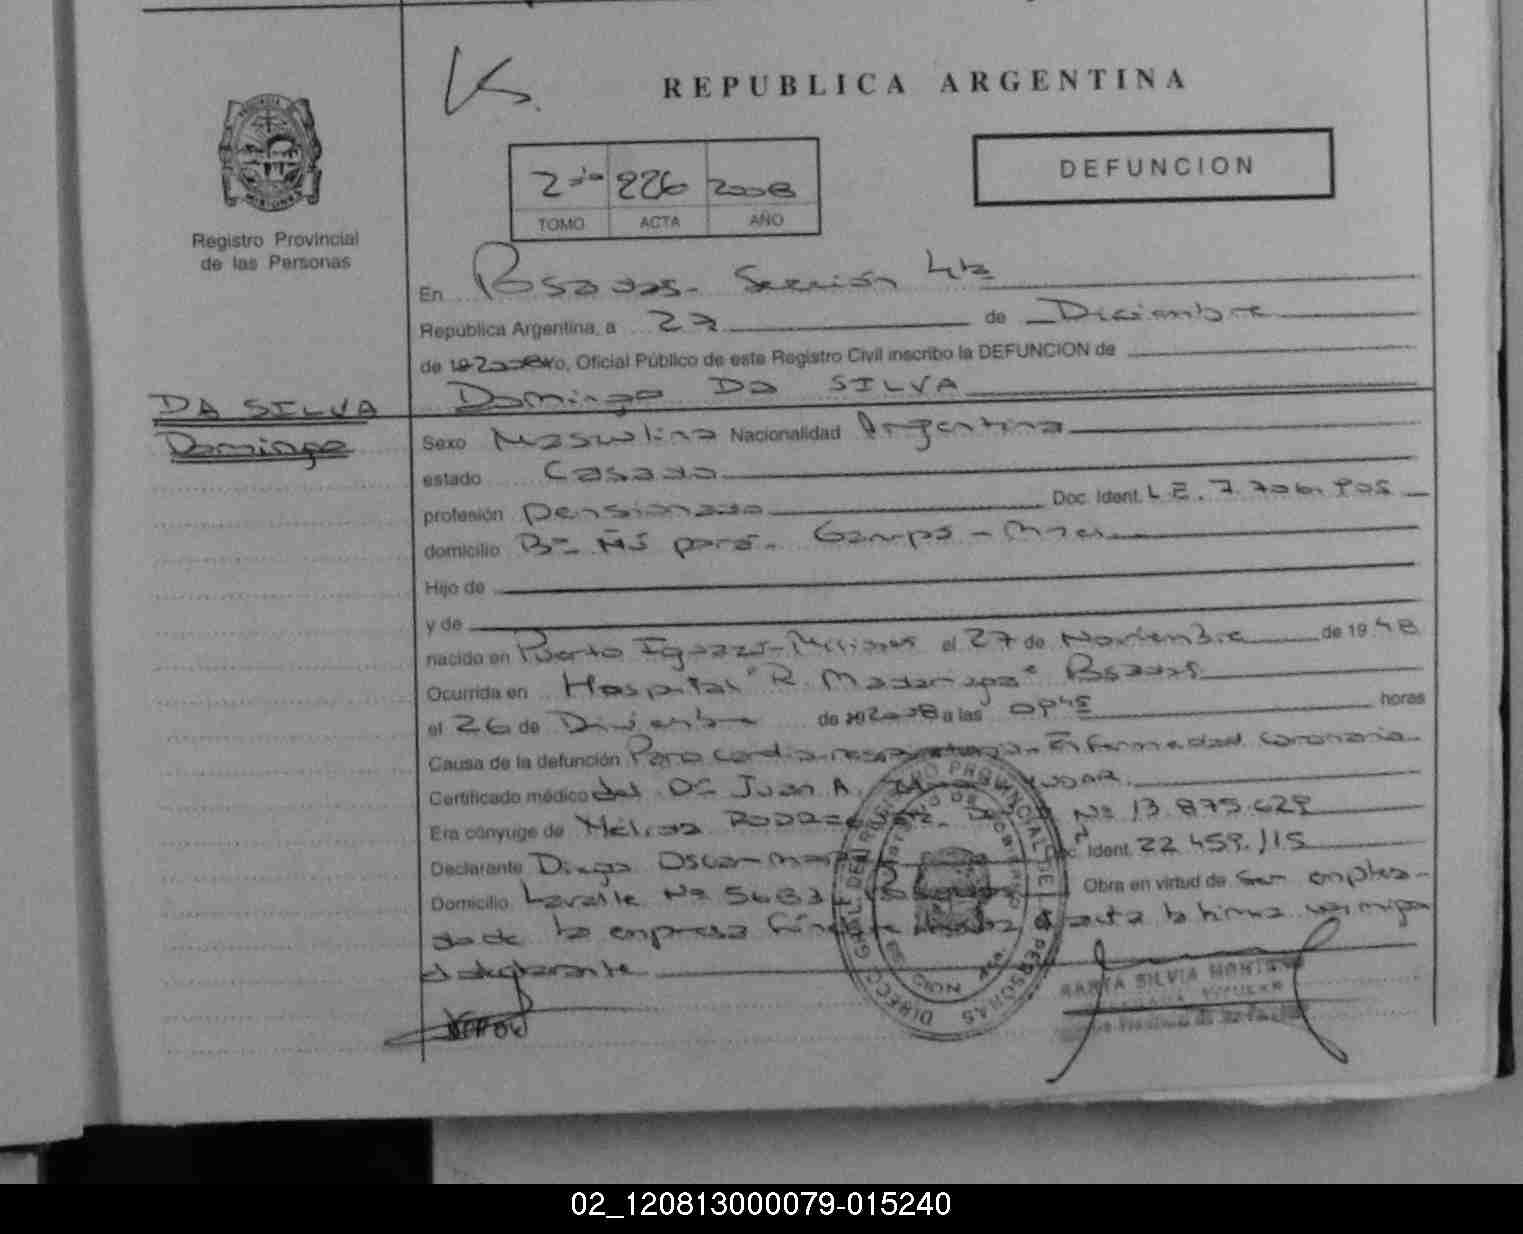 REPUBLICA ARGENTINA
DEFUNCION
2do 226 2008
TOMO ACTA AÑO
Registro Provincial
de las Personas
En Posadas - Sección 4ta
República Argentina, a 27 de Diciembre
de 2008 yo, Oficial Público de este Registro Civil inscribo la DEFUNCION de
Domingo DA SILVA
DA SILVA
Domingo
Sexo Masculino Nacionalidad Argentina
estado Casado
profesión pensionado Doc. Ident. L.E. 7.706.905
domicilio Bº Garupá - Mnes.
Hijo de
y de
nacido en Puerto Iguazú - Misiones el 27 de Noviembre de 1948
Ocurrida en Hospital "R. Madariaga" Posadas
el 26 de Diciembre de 2008 a las 0945 horas
Causa de la defunción Paro cardio-respiratorio - Enfermedad coronaria
Certificado médico del Dr Juan A.
Era cónyuge de Nº 13.875.629
Declarante Diego Oscar Doc. Ident. 22.459.115
Domicilio Lavalle Nº 5683 Posadas Obra en virtud de ser emplea-
do de la empresa acta la firma
el declarante
DIRECC. GRAL. DEL REGISTRO PROVINCIAL DE LAS PERSONAS
MARTA SILVIA
02_120813000079-015240